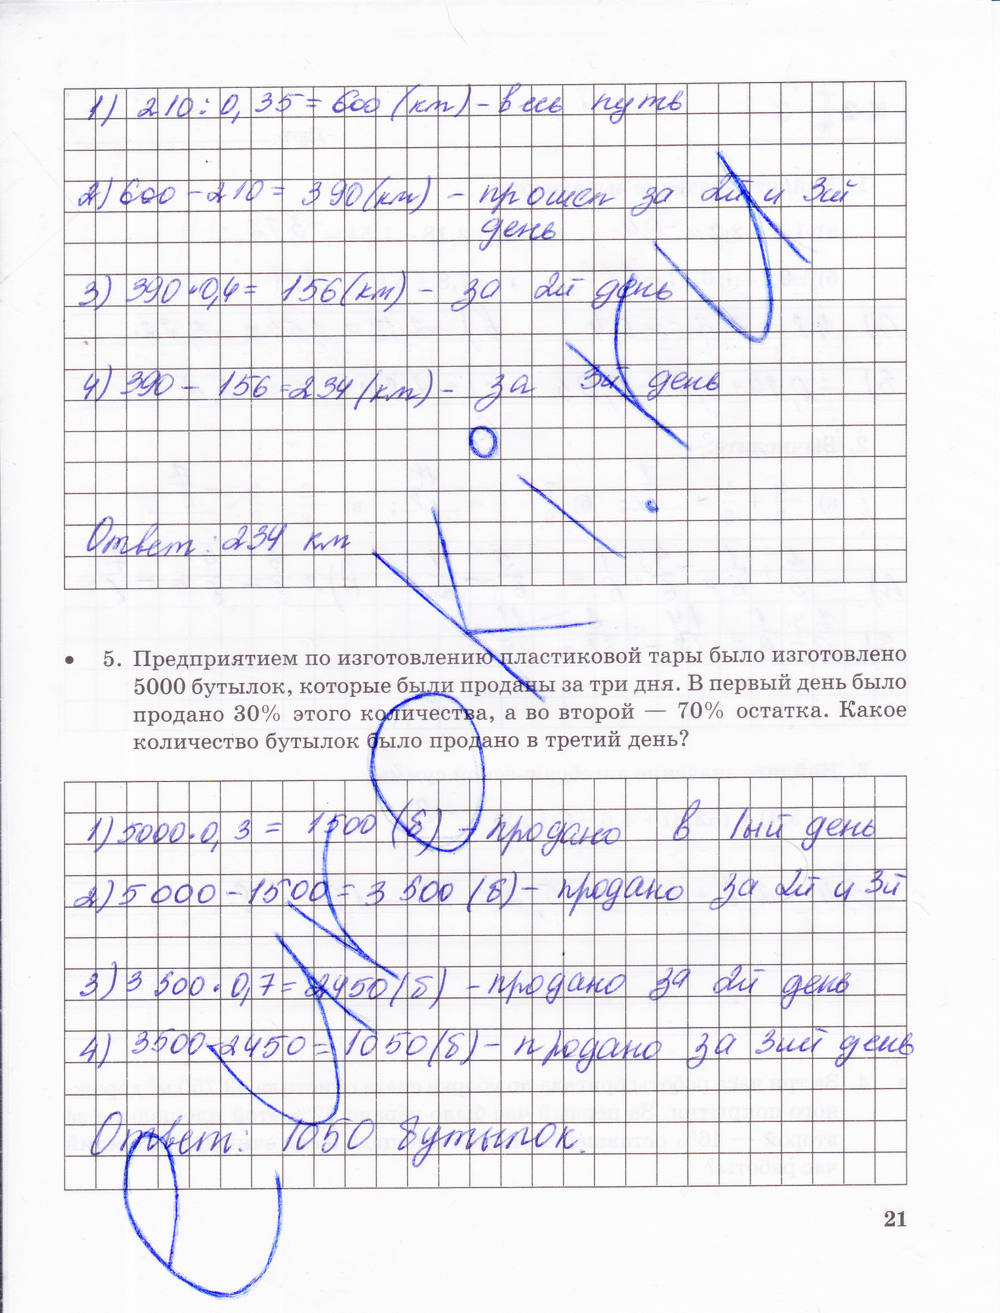 1) 210:0,35=600 (км) - весь путь
2) 600-210=390(км) - прошел за 2й и 3й
день
3) 390·0,4=156(км) - за 2й день
4) 390-156=234(км) - за 3й день
Ответ: 234 км
• 5. Предприятием по изготовлению пластиковой тары было изготовлено
5000 бутылок, которые были проданы за три дня. В первый день было
продано 30% этого количества, а во второй — 70% остатка. Какое
количество бутылок было продано в третий день?
1) 5000·0,3=1500 (б) - продано в 1ый день
2) 5000-1500=3500 (б) - продано за 2й и 3й
3) 3500·0,7=2450(б) - продано за 2й день
4) 3500-2450=1050(б) - продано за 3ий день
Ответ: 1050 бутылок.
21